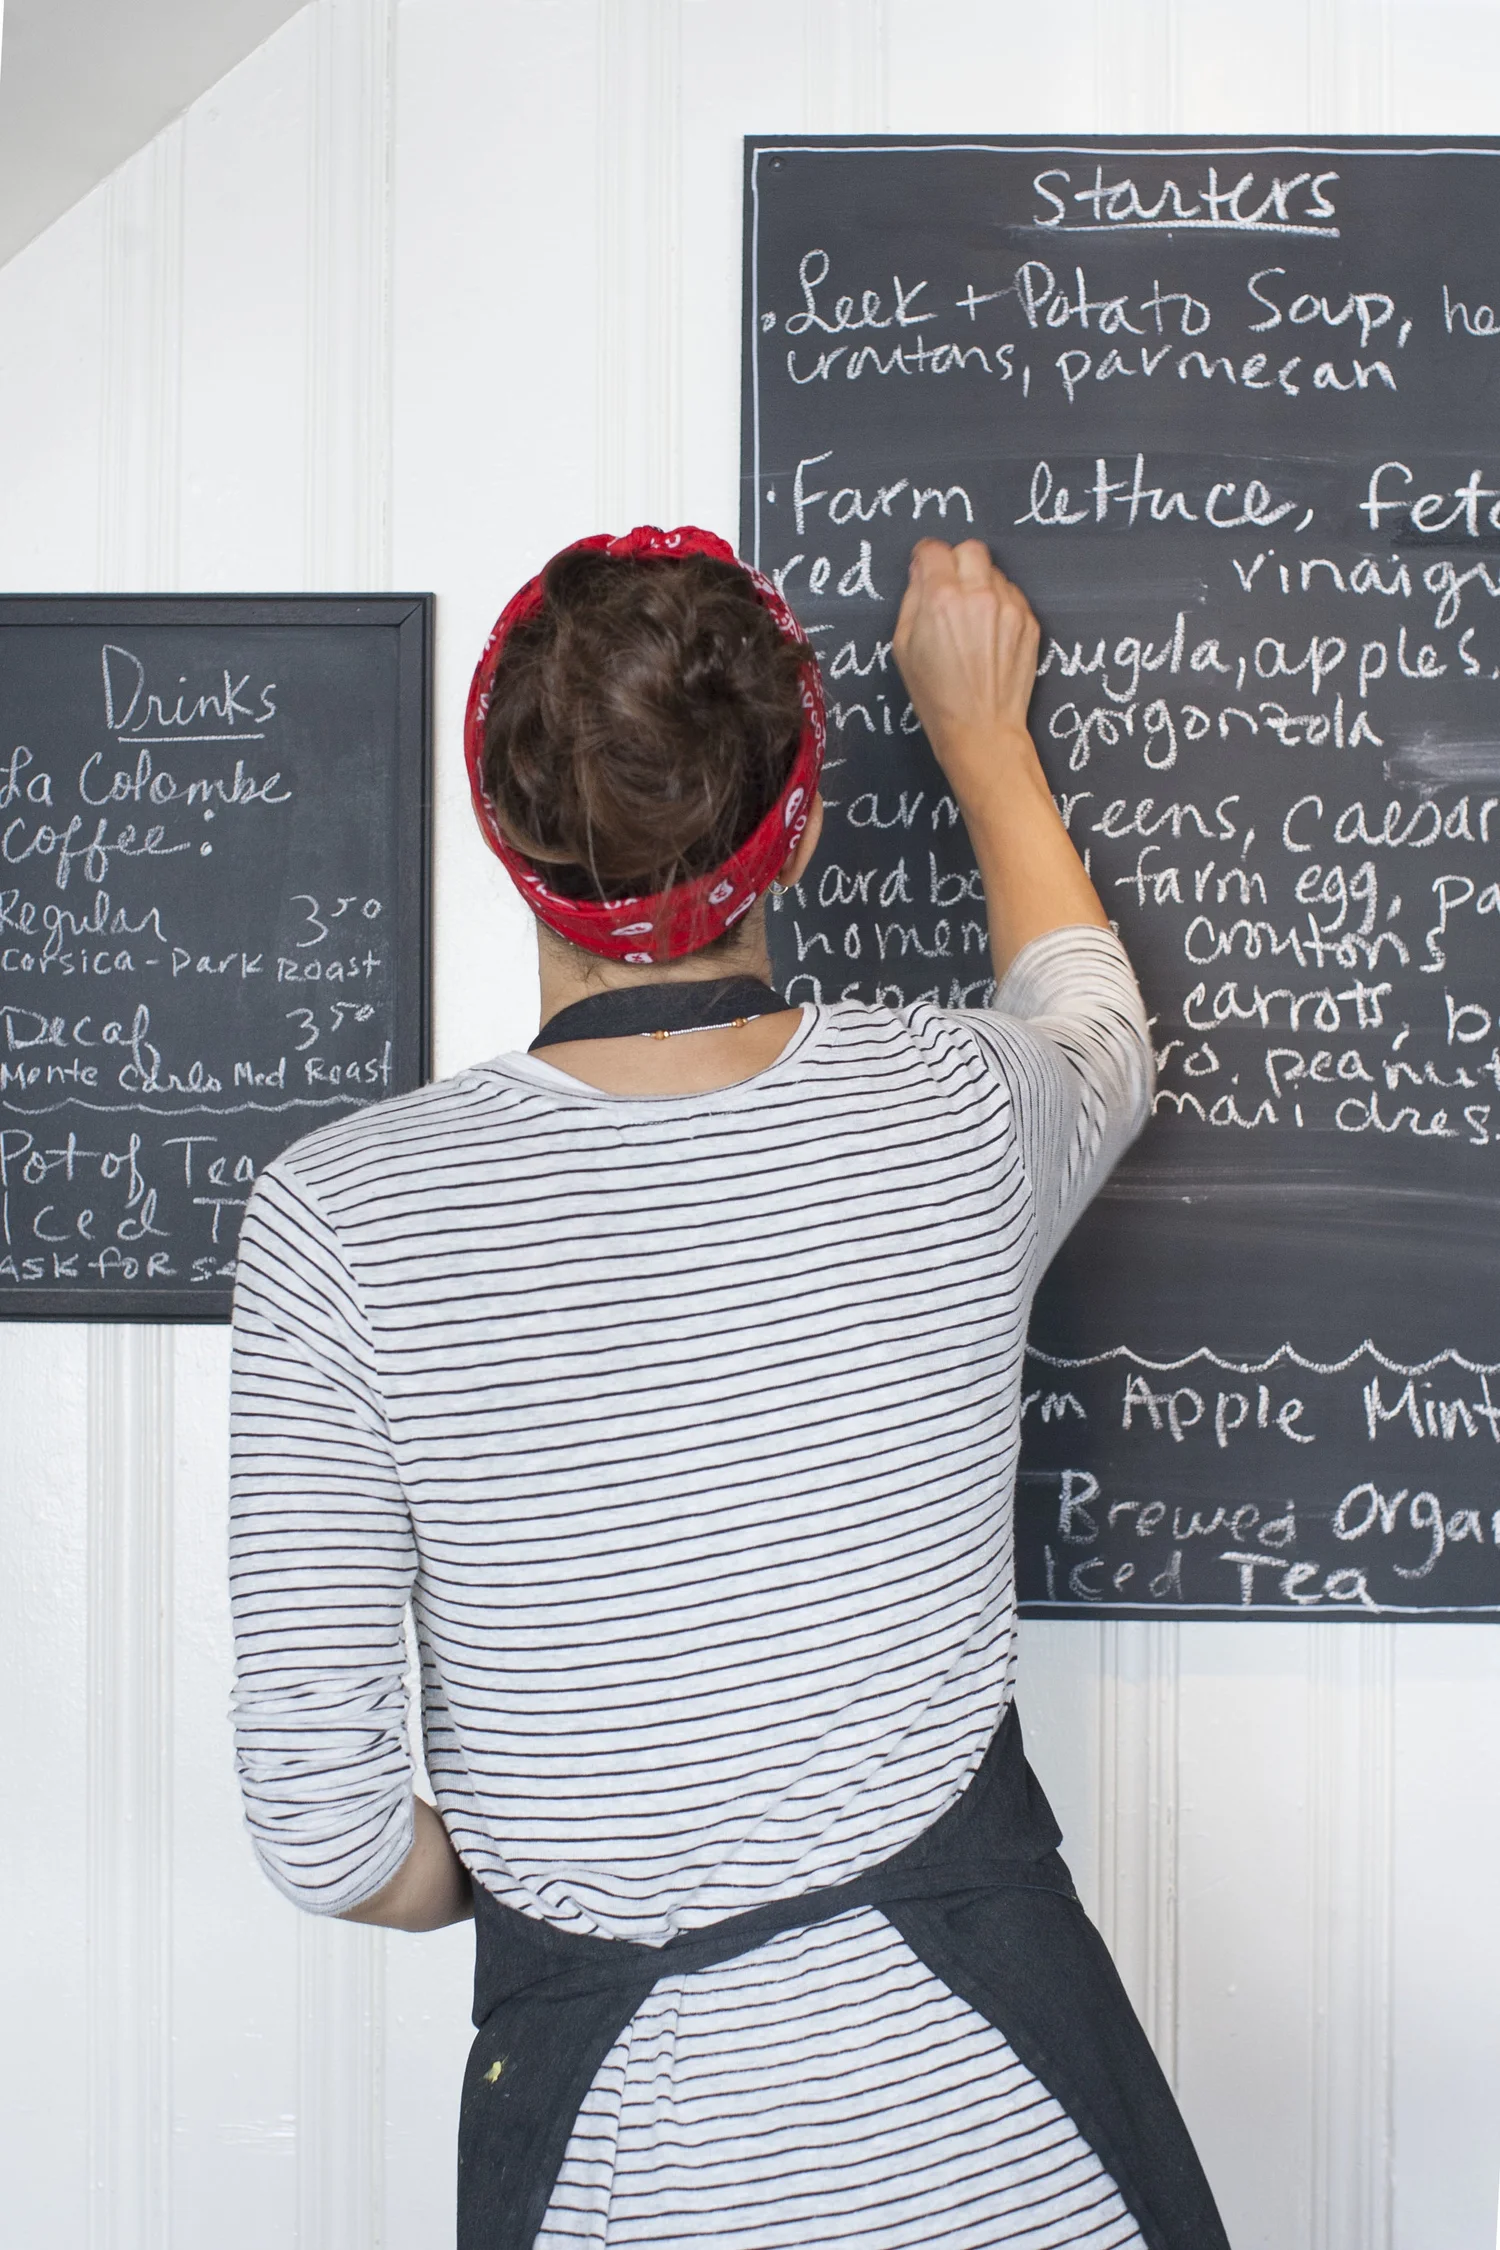 Drinks
La Colombe
Coffee:
Regular 3.50
Corsica - Dark Roast
Decaf 3.50
Monte Carlo Med Roast
Pot of Tea
Iced T
ASK FOR se
Starters
• Leek + Potato Soup, he
croutons, parmesan
• Farm lettuce, feta
red vinaigr
Far rugula, apples,
nio gorgonzola
Farm reens, caesar
hard bo farm egg, pa
homem croutons
Aspara carrots, b
ro, peanut
mari dres
rm Apple Mint
Brewed Organ
Iced Tea